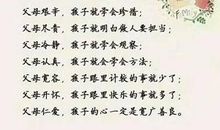 父母艰辛，孩子就学会珍惜；
父母尽责，孩子就明白做人要担当；
父母安静，孩子就学会观察；
父母认真，孩子就会学会方法；
父母宽容，孩子眼里计较的事就少了；
父母开怀，孩子眼里快乐的事就多了；
父母仁爱，孩子的心一定是宽广善良。